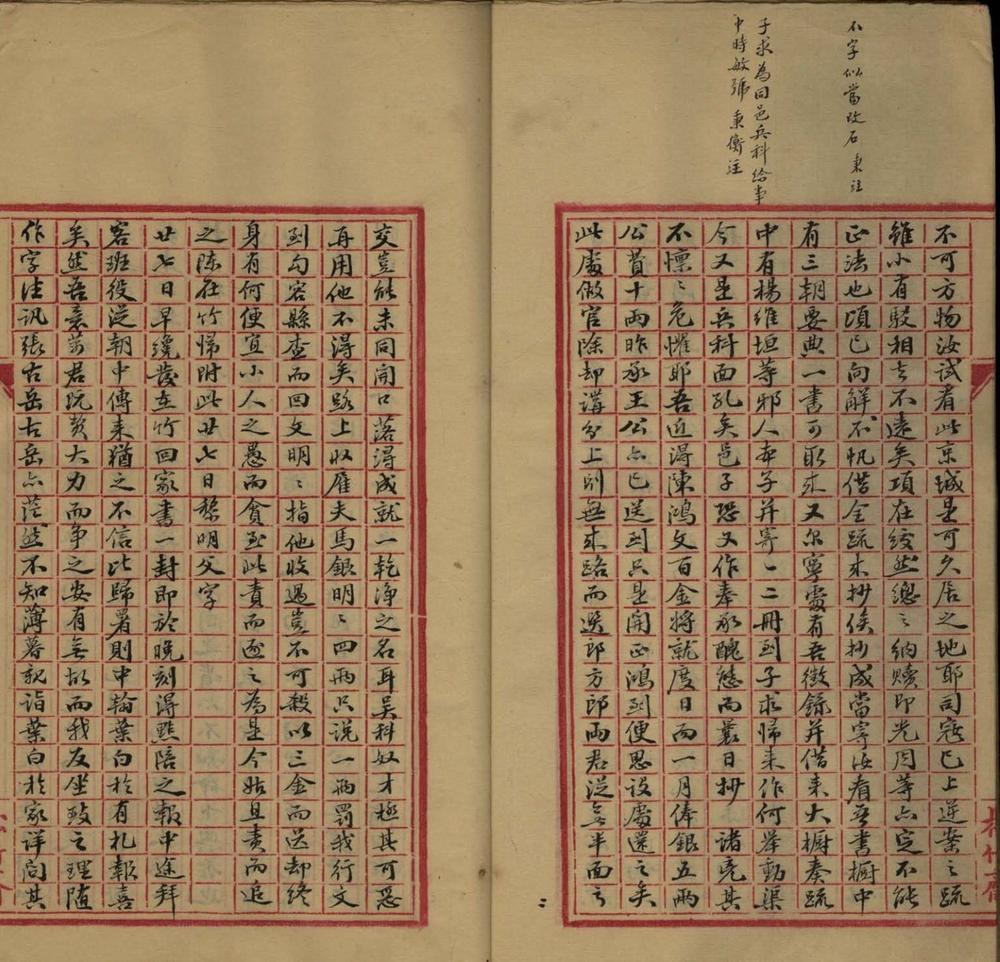 不字似當改石 秉注
子求為同邑兵科給事
中時敏號 秉衡注
不可方物汝試看此京城是可久居之地耶司寇已上逆案之疏
雖小有駁相去不遠矣項在絞然總之納贖即光周等亦定不能
正法也頃已向解不帆借全疏來抄俟抄成當寄汝看吾書櫥中
有三朝要典一書可取來又尔寧處有吾微錄并借來大櫥奏疏
中有楊維垣等邪人本子并寄一二冊到子求歸來作何舉動渠
今又是兵科面孔矣邑子恐又作奉承醜態向曩日抄 諸亮其
不懍之危懼耶吾近得陳鴻文百金將就度日而一月俸銀五兩
公費十兩昨承王公亦已送到只是開正鴻到便思設處還之矣
此處做官除却講分上別無來路而選郎方郎兩君從無半面之
交豈能未同開口落得成就一乾淨之名耳吳科奴才極其可惡
再用他不得矣路上收雇夫馬銀明明四兩只說一兩罰我行文
到句容縣查而回文明明指他收過豈不可殺以三金而送却終
身有何便宜小人之愚而貪至此責而逐之為是今姑且責而追
之陳在竹歸附此廿七日黎明父字
廿七日早纔發在竹回家書一封即於晚刻得點陪之報中途拜
客班役從朝中傳來猶之不信比歸署則中翰葉白於有札報喜
矣然吾意前君既費大力而爭之安有無故而我反坐致之理隨
作字往訊張古岳古岳亦茫然不知薄暮親詣葉白於家詳問其